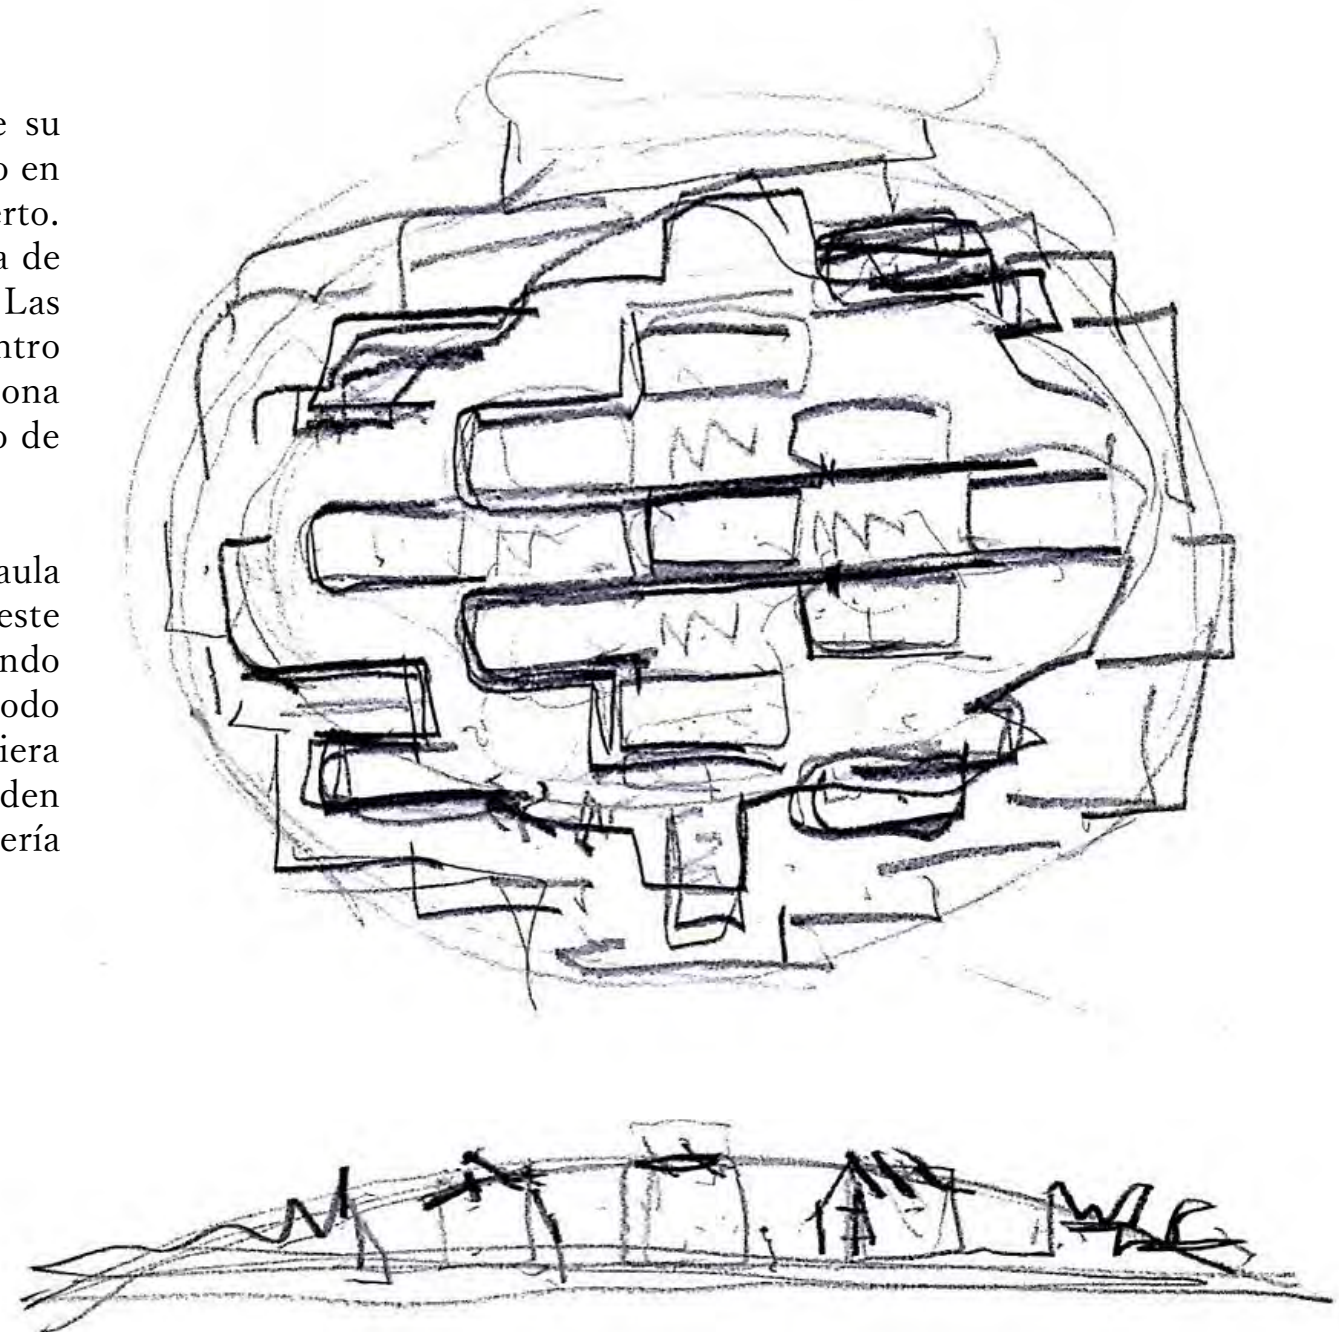 e su
o en
erto.
a de
Las
ntro
ona
o de
aula
este
ndo
odo
iera
den
ería